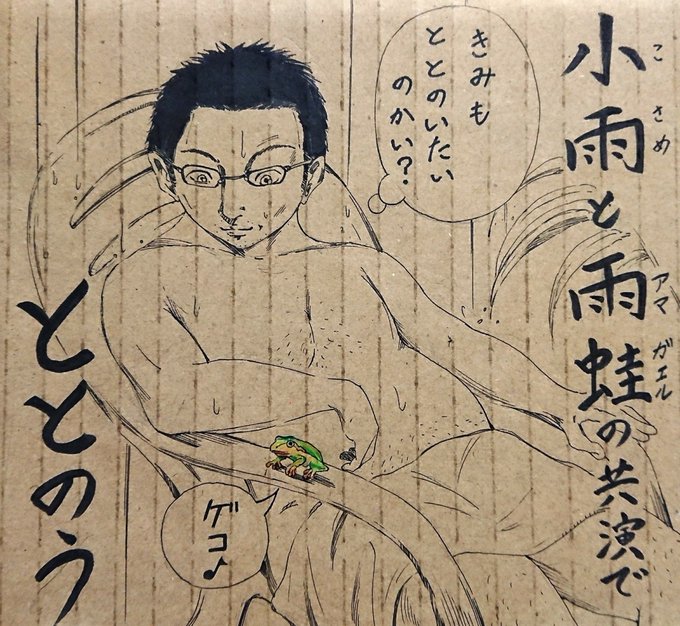 小雨と雨蛙の共演で
こさめ
アマガエル
きみも
ととのいたい
のかい?
ととのう
ゲコ♪